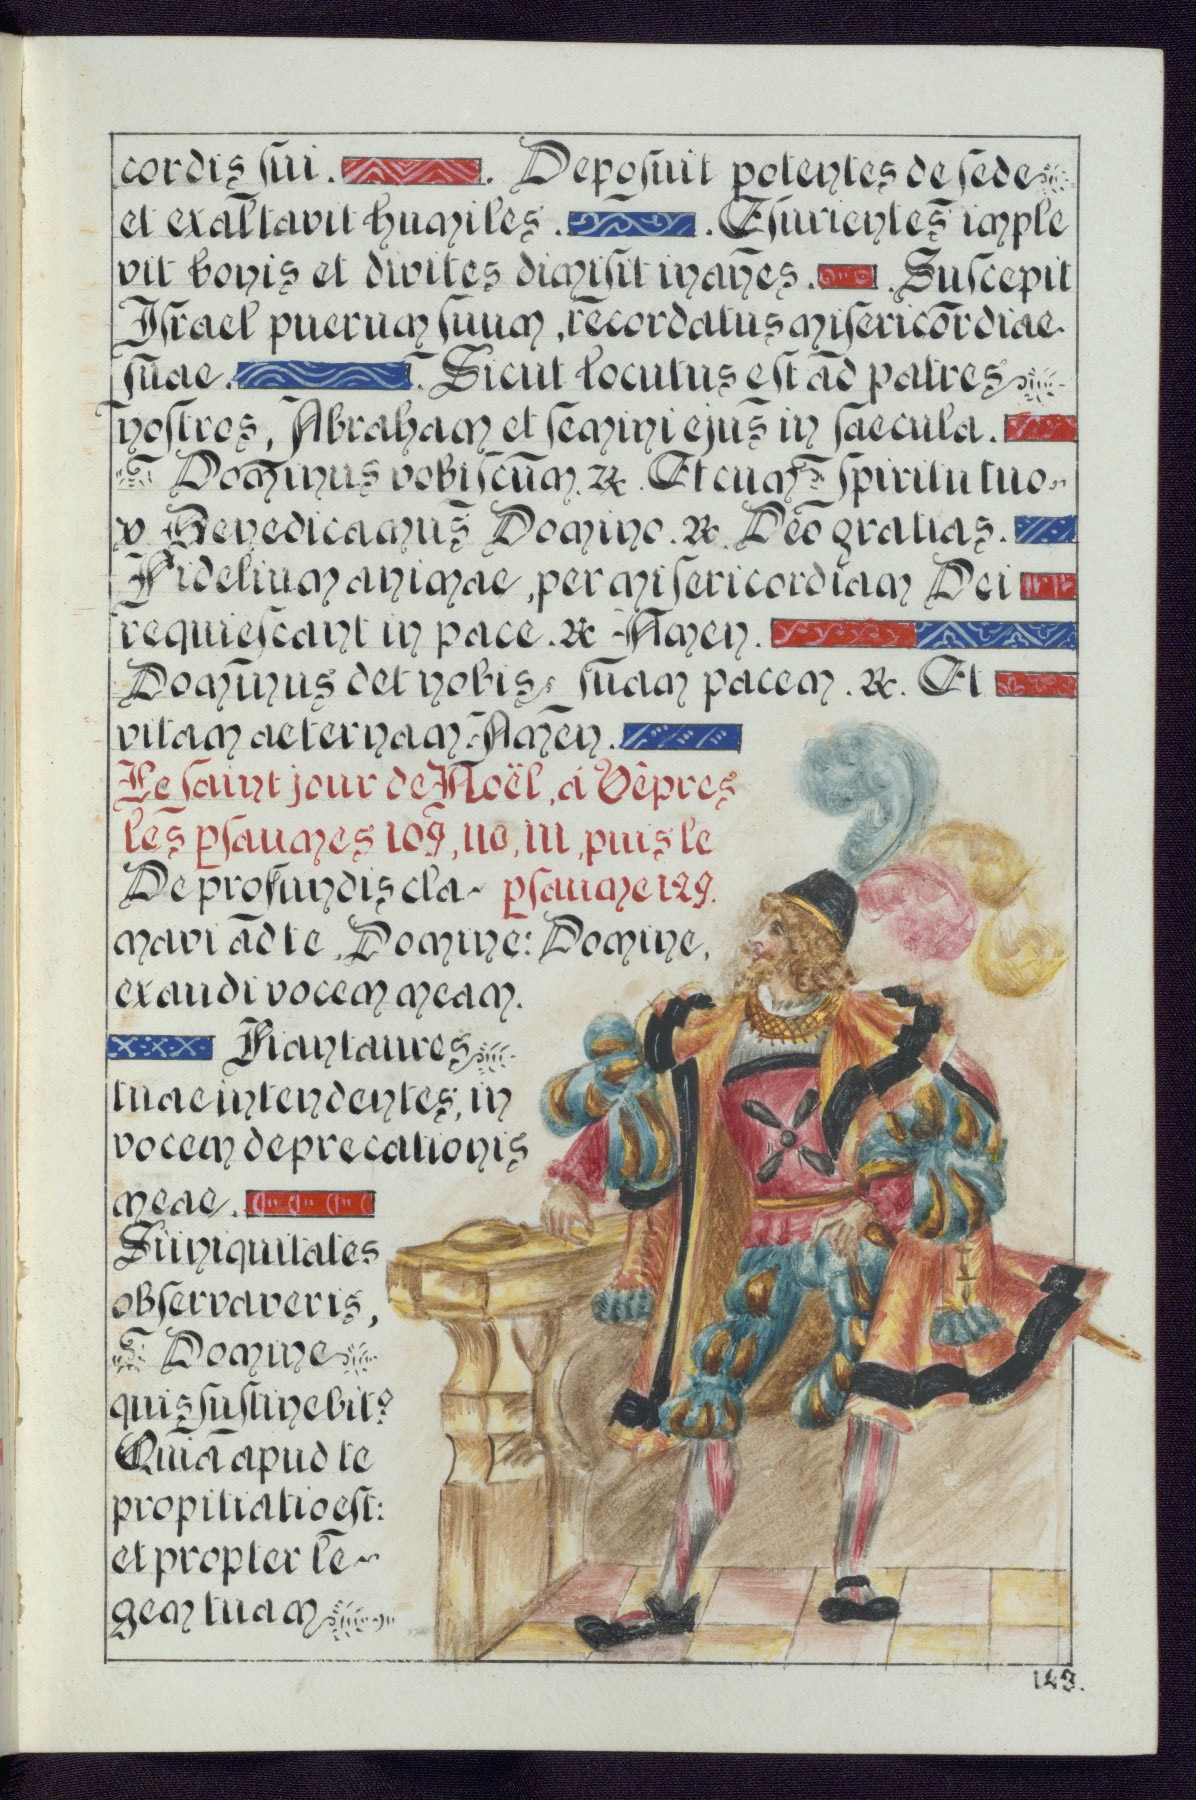 cordis sui. Deposuit potentes de sede
et exaltavit humiles. Esurientes imple
vit bonis et divites dimisit inanes. Suscepit
Israel puerum suum, recordatus misericordiae
suae. Sicut locutus est ad patres
nostros, Abraham et semini ejus in saecula.
Dominus vobiscum. R. Et cum spiritu tuo
v Benedicamus Domino. R. Deo gratias.
Fidelium animae, per misericordiam Dei
requiescant in pace. R Amen.
Dominus det nobis suam pacem. R. Et
vitam aeternam. Amen.
Le saint jour de Noël, à Vêpres
les psaumes 109, 110, 111, puis le
De profundis cla- psaume 129.
mavi ad te, Domine: Domine,
exaudi vocem meam.
Fiant aures
tuae intendentes, in
vocem deprecationis
meae.
Si iniquitates
observaveris,
Domine
quis sustinebit?
Quia apud te
propitiatio est:
et propter le-
gem tuam
143.